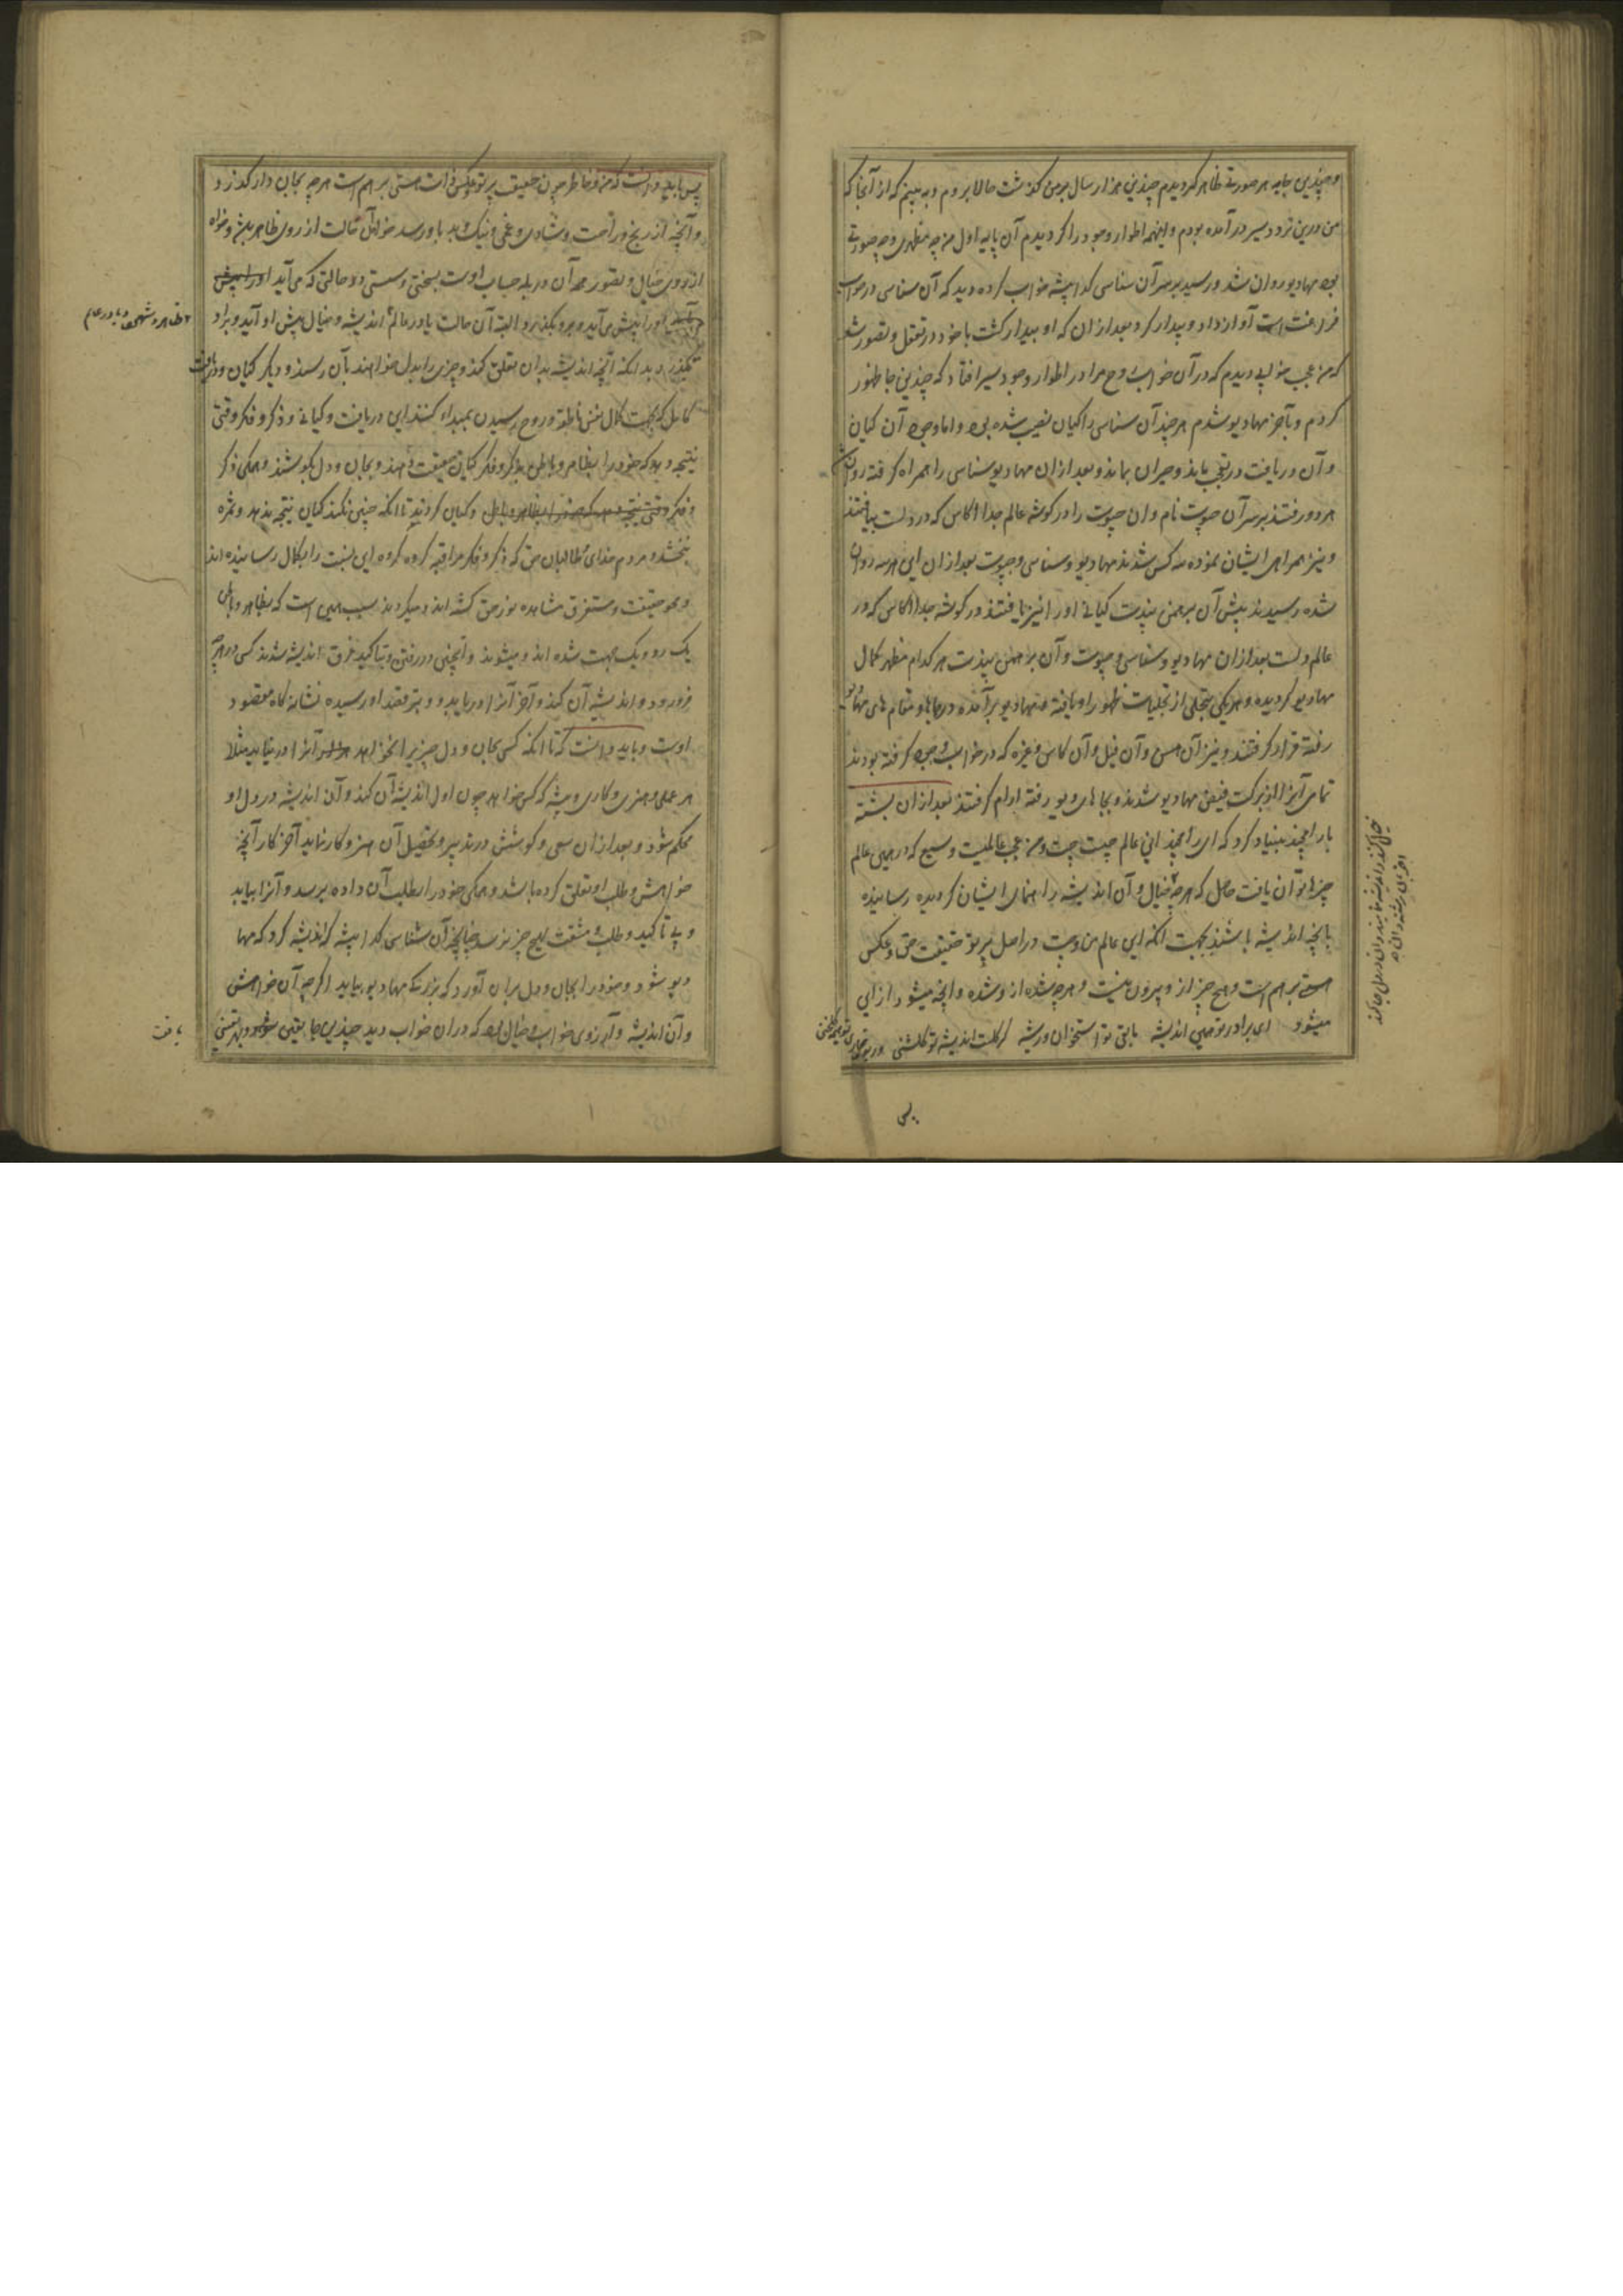 و چندین جا به هر صورتی ظاهر گردیدم چندین هزار سال برمن گذشت حالا بروم و به بینم که از آنجا که
من درین نزد و سیر در آمده بودم و اینهمه اطوار وجود را گردیدم آن پایه اول من چه مظهری و چه صورتی
بود مهادیو روان شد و رسید بر سر آن سناسی گدا پیشه خواب کرده دید که آن سناسی در خواب
است آواز داد و بیدار کرد بعد از ان که او بیدار گشت با خود در تعقل و تصور شد
که من عجب خوابی دیدم که در آن خواب روح مرا در اطوار وجود سیر افتاد که چندین جا ظهور
کردم و بآخر مهادیو شدم هر چند آن سناسی را گیان نصیب شده بود و اما وجود آن گیان
و آن دریافت در تعجب بماند و حیران بماند و بعد از ان مهادیو سناسی را همراه گرفته روان
هر دو رفتند بر سر آن جیوت نام و ان جیوت را در گوشه عالم جدا اکاس که در ولست یافتند
و نیز همراهی ایشان نموده سه کس شدند مهادیو و سناسی و جیوت بعد از ان این هر سه روان
شده رسیدند پیش آن برهمن پندت گیانی او را نیز یافتند در گوشه جدا اکاس که در
عالم ولست بعد از ان مهادیو و سناسی و جیوت و آن برهمن پندت هر کدام مظهر کمال
مهادیو گردیده و هر یکی بتجلی از تجلیات ظهور او یافته مهادیو برآمده و بجاها و مقام های مهادیو
رفته قرار گرفتند و نیز آن هنس و آن فیل و آن کاس و غیره که در خواب وجود گرفته بودند
تمامی آنها از برکت فیض مهادیو شدند و بجاهای دیو رفته ارام گرفتند بعد از ان بشسته
با رامچند بنیاد کرد که ای رامچند این عالم چیست و من عجب عالمیست وسیع که در همین عالم
چیزها توان یافت حاصل که هر چه خیال و آن اندیشه راهنمای ایشان گردیده رسانیده
بانچه اندیشه باشند بجهت انکه این عالم من و تست در اصل پرتو حقیقت حق و عکس
است و هیچ چیز از و بیرون نیست و هر چه شده از و شده و انچه میشود از این
میشود ای برادر تو همین اندیشه مابقی تو استخوان و ریشه گر گلست اندیشه تو گلشنی ور بود خاری تو هیمه گلخنی
پس
پس باید دانست که من و خاطر چون حقیقت پرتو و عکس ذات هستی برهم است هر چه بجان و از گذرد
و آنچه از رنج و راحت و شادی و غمی و نیک و بد باو رسد خواه آن حالت از روی ظاهر باشد و خواه
از روی خیال و تصور همه آن در پله حساب اوست بسختی و سستی و هر حالتی که می آید
او را پیش می آید و میگذرد البته آن حالت یا در عالم اندیشه و خیال پیش او آید و برو
بگذرد بدانکه آنچه اندیشه بدان تعلق کند و چیزی را بدل خواهند بآن رسند و دیگر گیان و دریافت
کامل که بجهت کمال نفس ناطقه و روح رسیدن بمبداء کنند این دریافت و گیانی و ذکر و فکر وقتی
نتیجه دهد که خود را بظاهر و باطن بذکر و فکر گیان حقیقت دهند و بجان و دل بکوشند و همگی ذکر
و فکر و گیان گردند تا انکه چنین نکنند گیان نتیجه ندهد و ثمره
نبخشد و مردم خدای و طالبان حق که ذکر و فکر و مراقبه کرده این نسبت را بکمال رسانیده اند
و محو حقیقت و مستغرق مشاهده نور حق گشته اند و میگردند سبب همین است که بظاهر و باطن
یک رو و یک جهت شده اند و میشوند و اینچنین در رفتن و تاکید غرق اندیشه شدند کسی در هر چه
فرو رود و اندیشه آن کند و آخر آنرا دریابد و و تیر قصد او رسیده نشانه گاه مقصود
اوست و باید دانست که تا انکه کسی بجان و دل چیزی را نخواهد آنرا در نیابد مثلا
هر عملی و هنری و کاری و پیشه که کس خواهد چون اول اندیشه آن کند و آن اندیشه در دل او
محکم شود و بعد از ان سعی و کوشش در تدبیر و تحصیل آن هنر و کار نماید آخر کار آنچه
خواهش و طلب او تعلق کرده باشد و همگی خود را بطلب آن داده برسد و آنرا بیابد
و بی تاکید و طلب و مشقت هیچ چیز نرسد چنانچه آن سناسی گدا پیشه که اندیشه کرد که مها
دیو شود و خود را بجان و دل بران آورد که بزرگی مهادیو بیابد اگرچه آن خواهش
و آن اندیشه و آرزوی خواب و خیال بود که دران خواب دید چندین جا
یافت